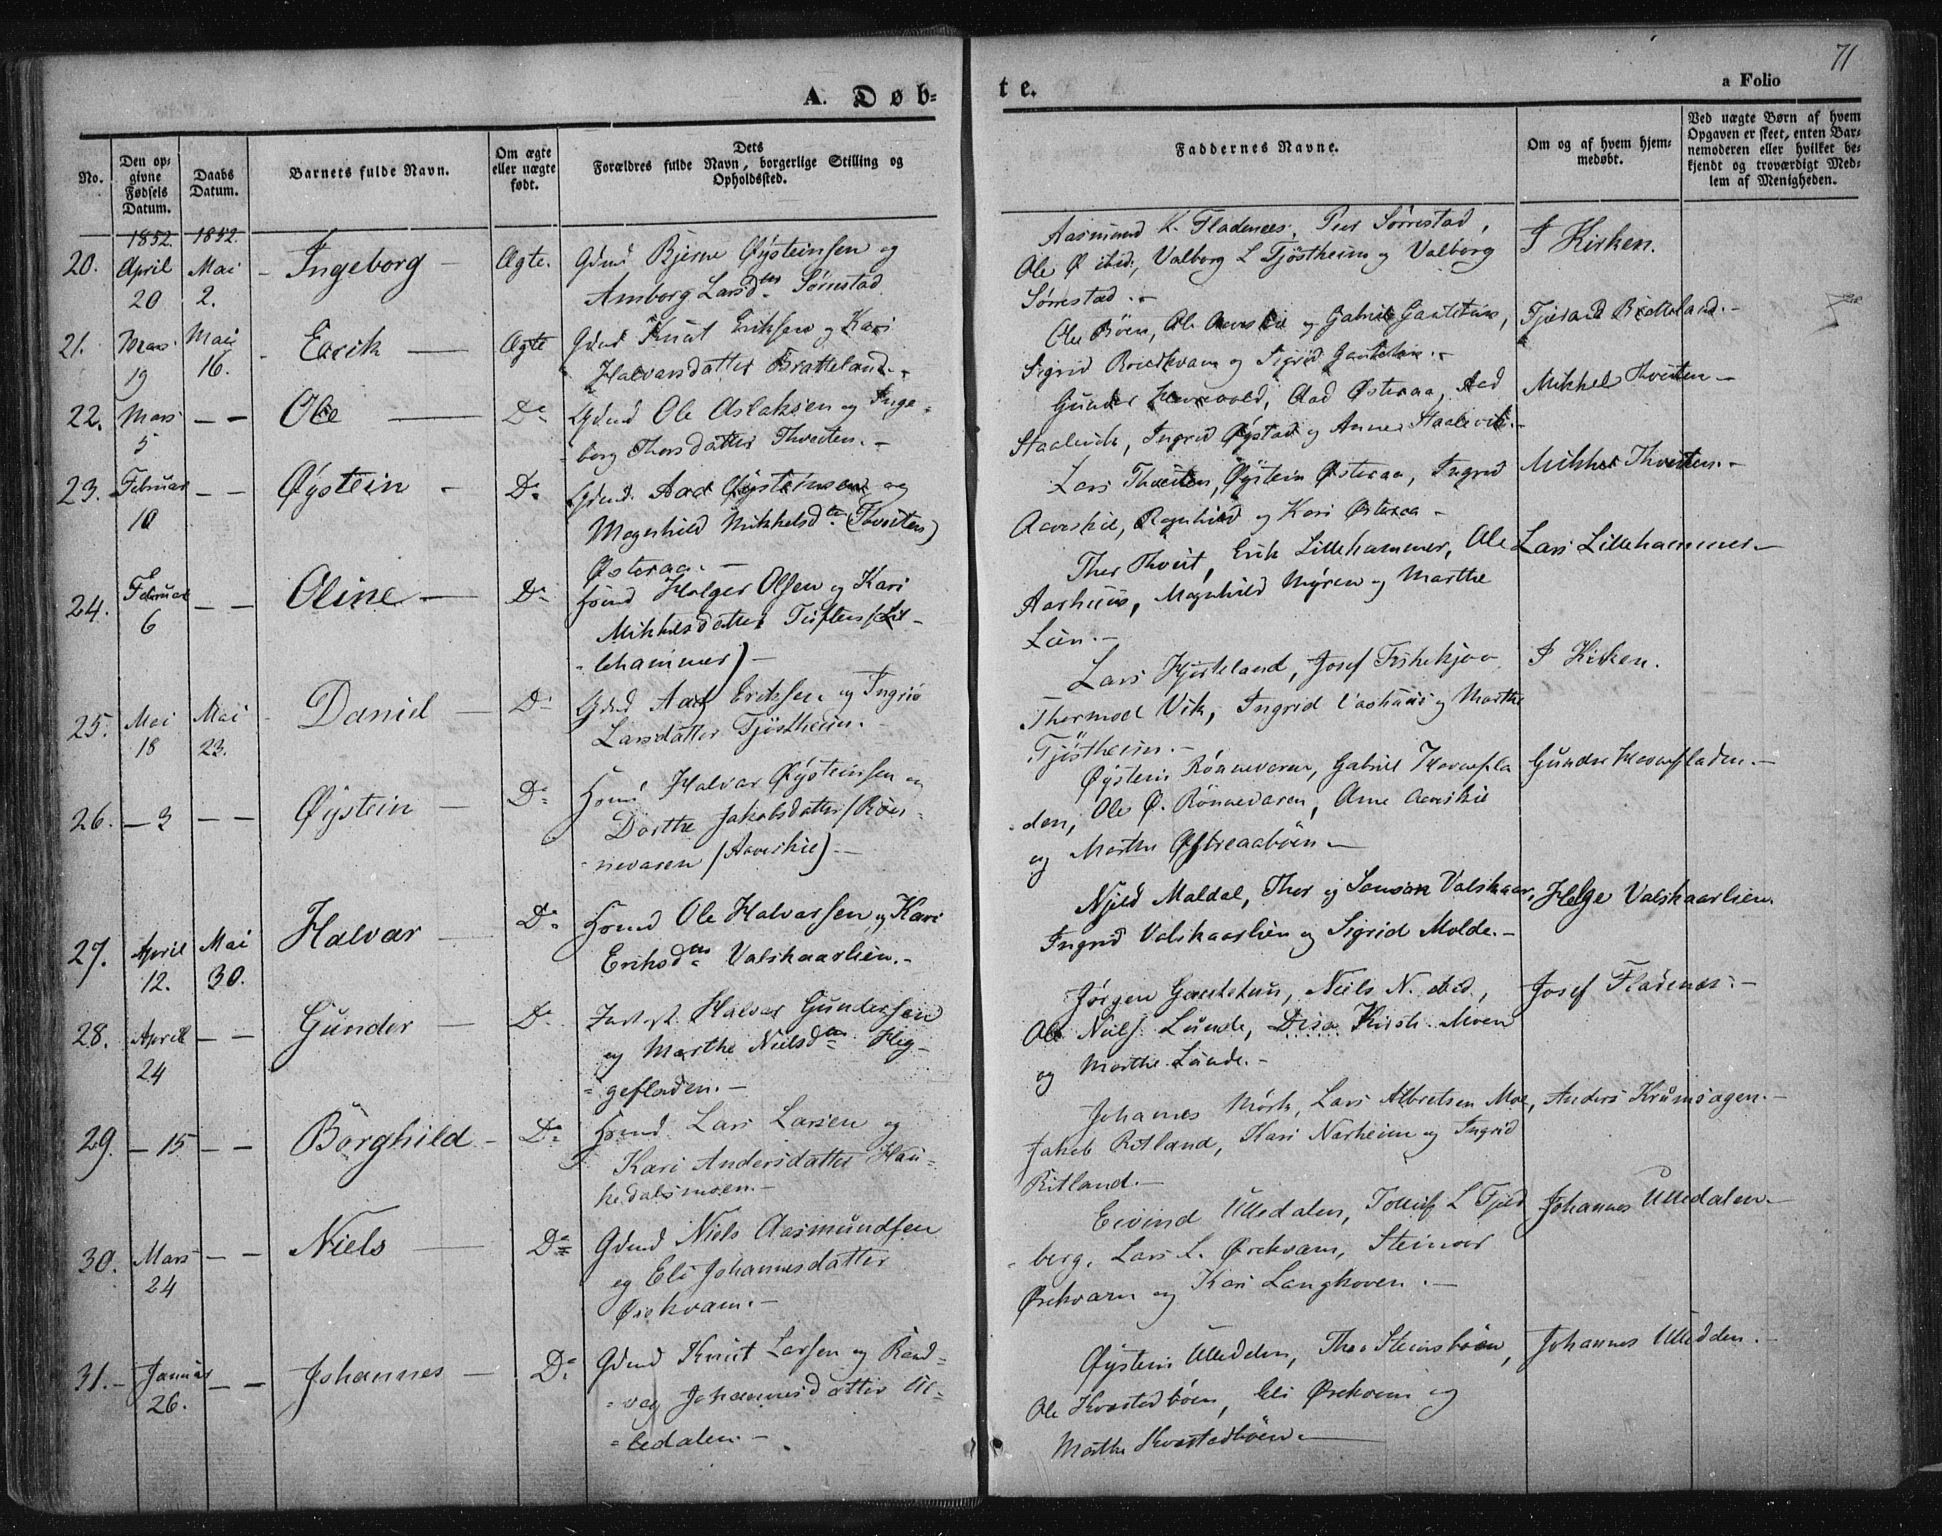 71
A. Døb-
te.
a Folio
No.
Den opgivne Fødsels Datum.
Daabs Datum.
Barnets fulde Navn.
Om ægte eller uægte født.
Dets Forældres fulde Navn, borgerlige Stilling og Opholdssted.
Faddernes Navne.
Om og af hvem hjemmedøbt.
Ved uægte Børn af hvem Opgaven er skeet, enten Barnemoderen eller hvilket bekjendt og troværdigt Medlem af Menigheden.
1852. 1852.
20. April 20 Mai 2. Ingeborg Ægte.
Gdmd Bjerne Øÿsteinsen og
Amborg Larsd. Sørrestad
Aasmund K. Fladenees, Peer Sørrestad,
Ole Ø ibid., Valborg L Tjöstheim og Valborg
Sörrestad.
I Kirken.
21. Mars 19 Mai 16. Eerik Ægte
Gdmd Knut Eriksen og Kari
Halvarsdatter Bratteland.
Ole Böen, Ole Aareskie og Gabriel Gautetun,
Sigrid Breidkvam og Sigrid Gautetun.
Tjerand Bratteland.
22. Mars 5 Ole D°
Gdmd Ole Aslaksen og Inge-
borg Thorsdatter Thveiten.
Gunder, Aad Østeraa, Aad
Staalevik, Ingrid Øÿstad og Anne Staalevik.
Mikkel Thveiten
23. Februar 10 Øÿstein D°
Gdmd. Aad Øÿsteinsen og
Magnhild Mikkelsd. (Thveiten)
Østeraa.
Lars Thveiten, Øÿstein Østeraa, Ingrid
Aareskie, Ragnhild og Kari Østeraa
Mikkel Thveiten.
24. Februar 6 Oline D°
Hsmd Holger Olsen og Kari
Mikkelsdatter Tuften (Lil-
lehammer)
Thor Thveit, Erik Lillehammer, Ole
Aarhuus, Magnhild Mÿren og Marthe
Lien.
Lars Lillehammer
25. Mai 18 Mai 23. Daniel D°
Gdmd Aad Eriksen og Ingrid
Larsdatter Tjöstheim.
Lars Hjorteland, Josef Fiskekjøn
Thormod Vik, Ingrid Aarhuus og Marthe
Tjöstheim.
I Kirken.
26. 3 Øÿstein D°
Hsmd Halvar Øÿsteinsen og
Dorthe Jakobsdatter (Røn-
nevaren (Aareskie)
Øÿstein Rönnevaren, Gabriel Havrefla
den, Ole Ø. Rönnevaren, Anne Aareskie
og Marthe Østreaaböen
Gunder Havrefladen.
27. April 12. Mai 30. Halvar D°
Hsmd Ole Halvarsen og Kari
Eriksd. Valskaarlien.
Njeld Maldal, Thor og Samson Valskaar,
Ingrid Valskaarlien og Sigrid Molde.
Helge Valskaarlien.
28. April 24 Gunder D°
Halvar Gundersen
og Marthe Nielsd. Heg-
gefladen.
Jörgen Gautetun, Niels N. ibid,
Ole Niels. Lunde, Disa Kirst. Moen
og Marthe Lunde.
Josef Fladenes.
29. 15 Börghild D°
Hsmd Lars Larsen og
Kari Andersdatter Hau-
kedalsmoen.
Johanes Mörk, Lars Albretsen Moe,
Jakob Ritland, Kari Narheim og Ingrid
Ritland.
Anders Krumsagen.
30. Mars 24 Niels D°
Gdmd Niels Aasmundsen
og Eli Johannesdatter
Ørekvam.
Eivind Ulledalen, Tollef L Fjeld
berg, Lars L. Ørekvam, Steinvor
Ørekvam og Kari Langhoven.
Johannes Ulledalen
31. Januar 26. Johannes D°
Gdmd Knut Larsen og Rand-
vey Johannesdatter Ul-
ledalen.
Øÿstein Ulledalen, Thor Steinsböen,
Ole Kvæstadböen, Eli Ørekvam og
Marthe Kvæstadböen.
Johannes Ulledalen.